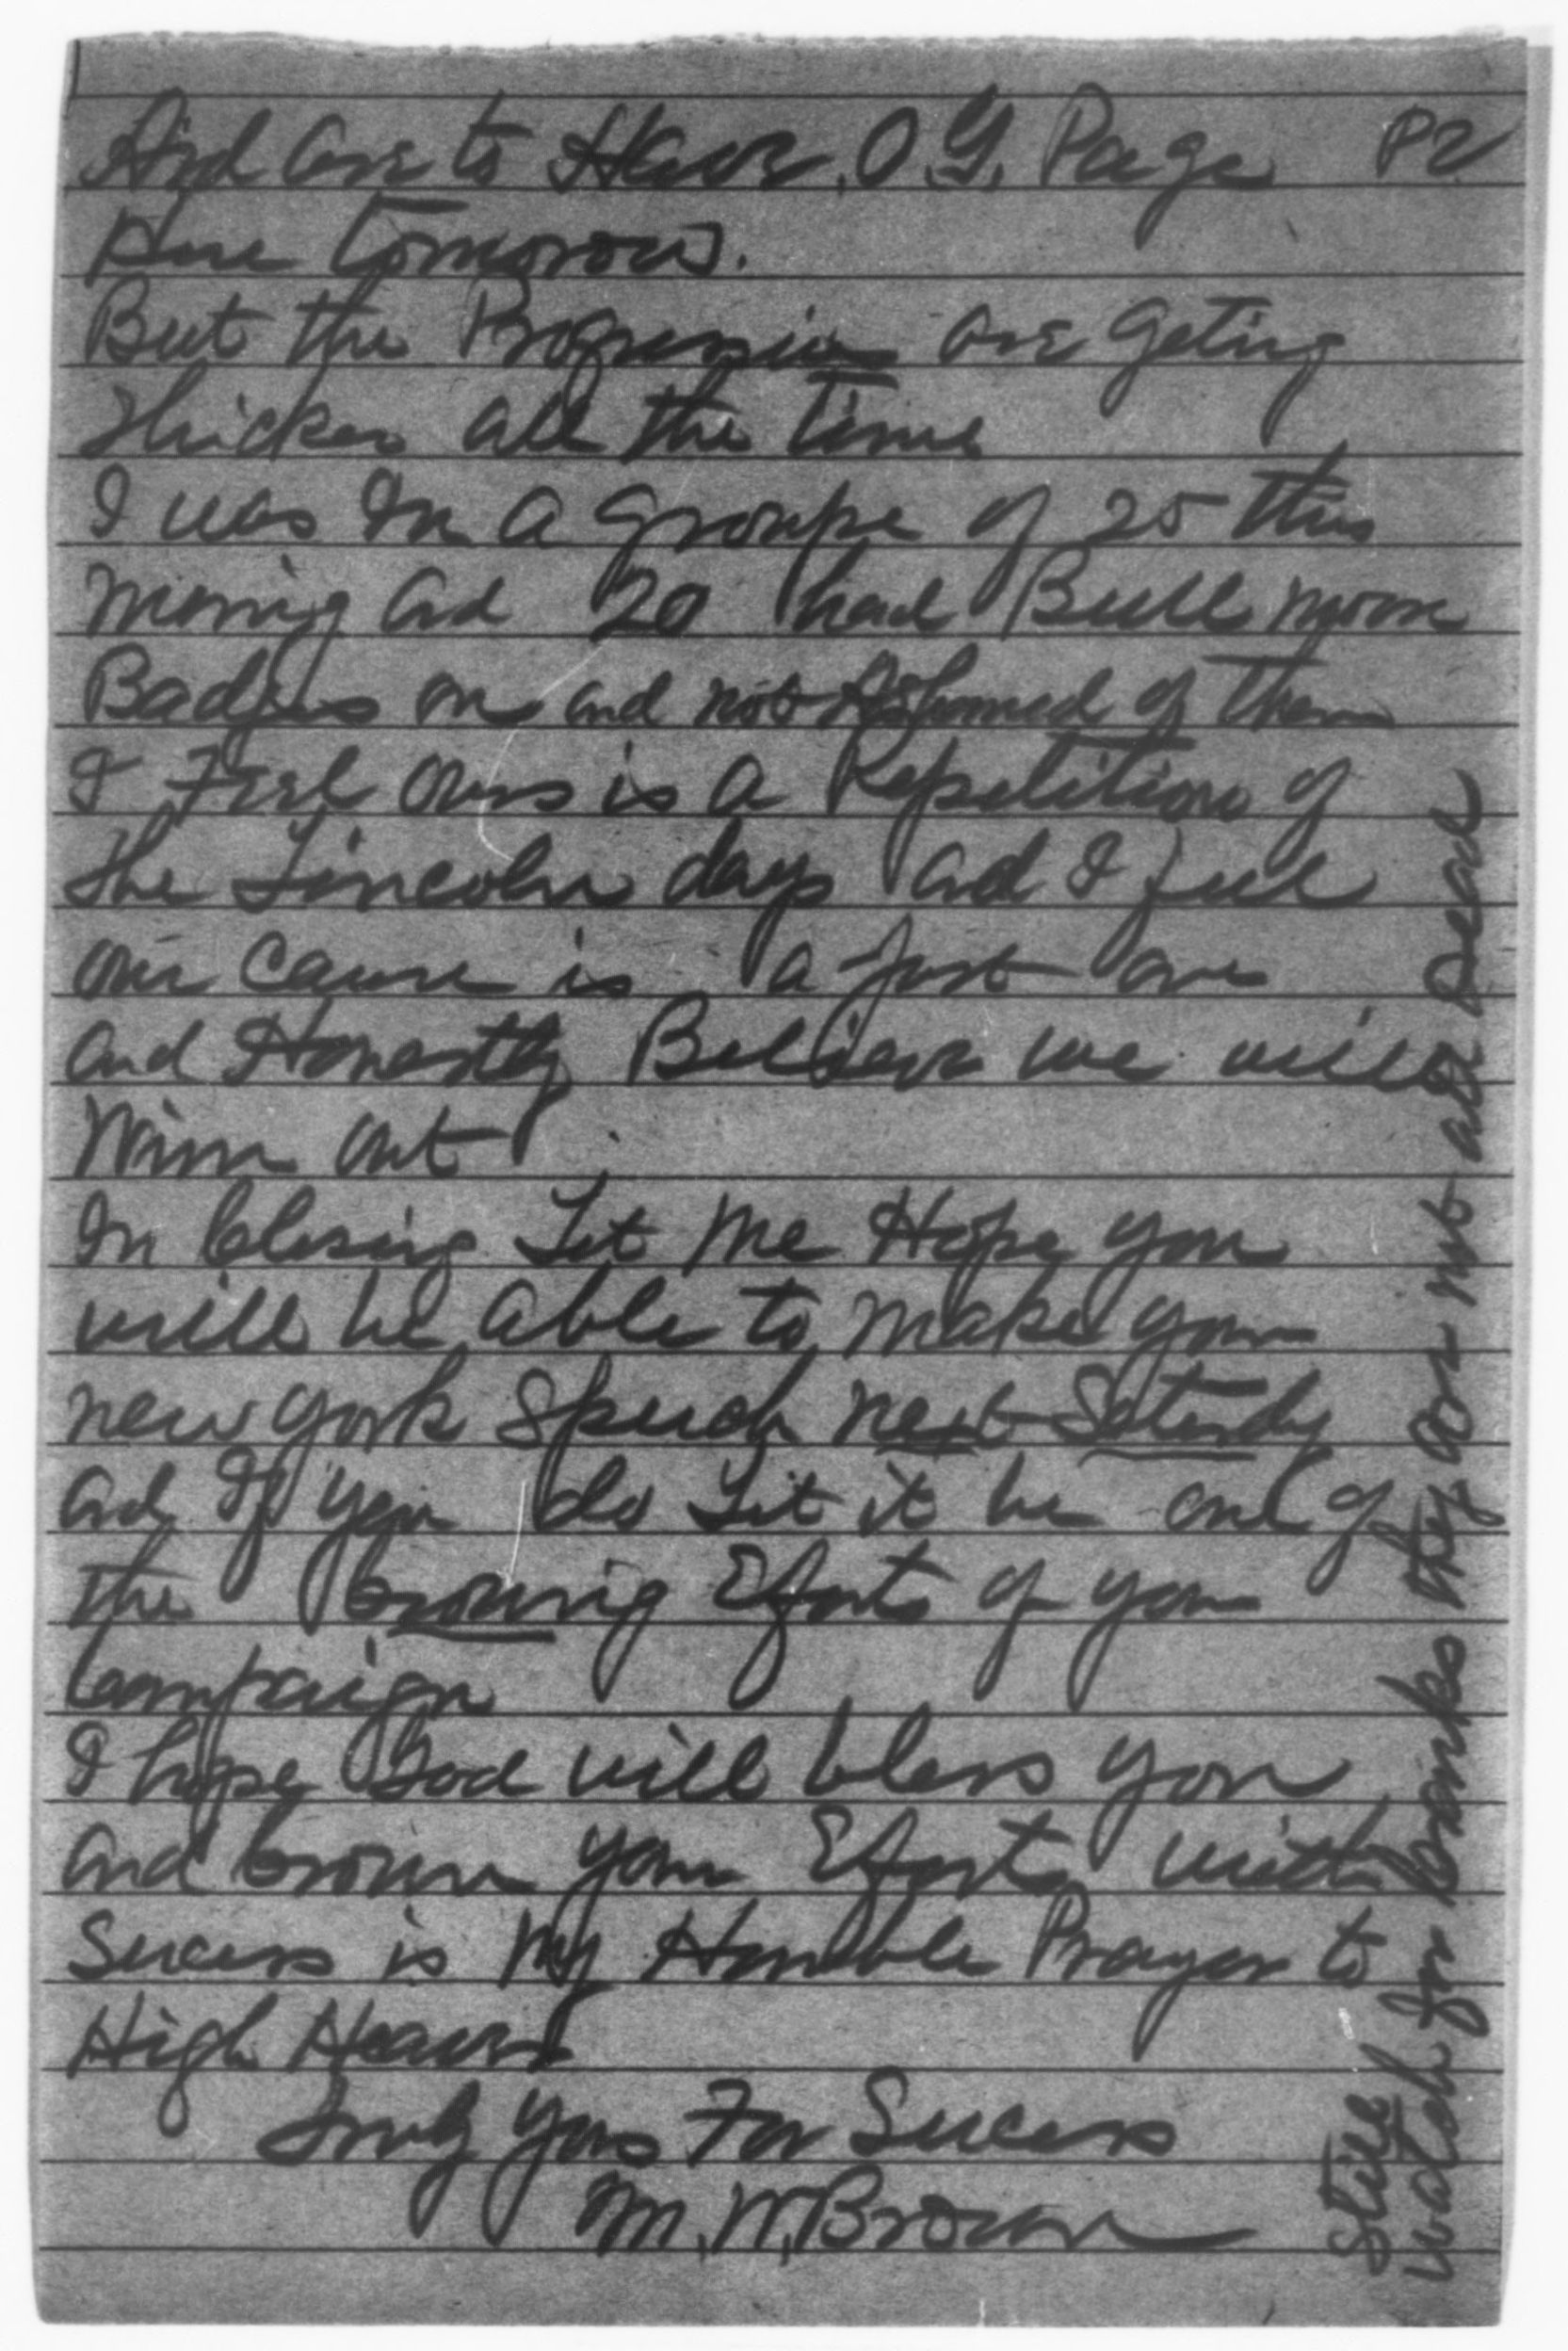 And are to Have O.G. Page P2
here tomorow.
But the Progressive are Geting
thicker all the time
I was In a groupe of 25 this
mornig and 20 had Bull moose
Badges on and not Ashamed of them
I Feel ours is a Repetition of
the Lincoln days and I feel
our cause is a just one
and Honestly Believe we will
Winn out
In Closing Let Me Hope you
will be able to make your
new york Speech next Saterdy
and If you do Let it be one of
the Crowing Eforts of your
Campaign
I hope God will bless you
and Crown your Eforts with
Sucess is My Humble Prayer to
High Heaven
Truly Yours For Sucess
M. W. Brown
Still
watch for Cranks they are not all Dead